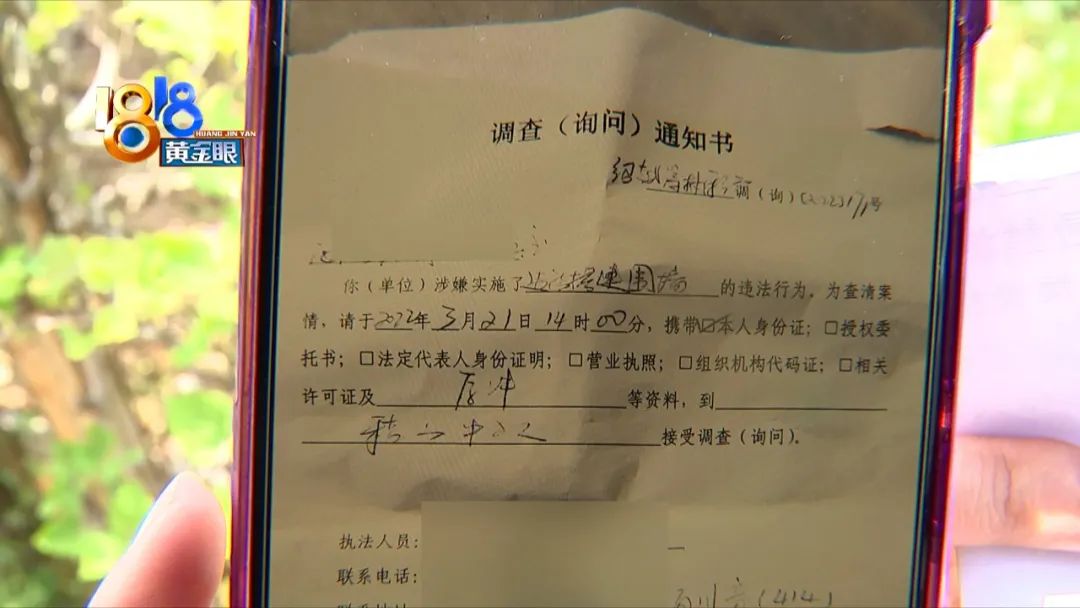 1818
HUANG JIN YAN
黄金眼
调查（询问）通知书
调（询）〔2022〕171号
你（单位）涉嫌实施了违法搭建围墙的违法行为，为查清案
情，请于2022年3月21日14时00分，携带☑本人身份证；□授权委
托书；□法定代表人身份证明；□营业执照；□组织机构代码证；□相关
许可证及 等资料，到
接受调查（询问）。
执法人员：
联系电话：
(414)